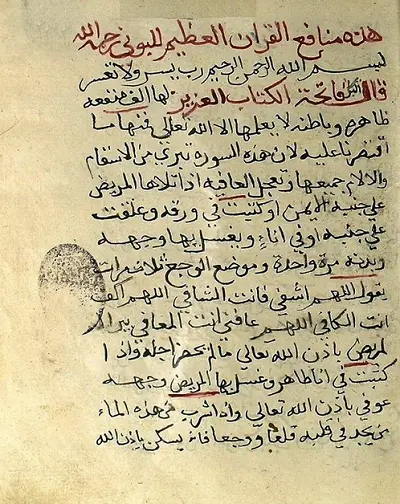 هذه منافع القران العظيم للبوني رحمه الله
بسم الله الرحمن الرحيم رب يسر ولا تعسر
فاتحة الكتاب العزيز لها الف منفعه
ظاهره وباطنه لا يعلمها الا الله تعالى فمنها ما
اقتصرنا عليه لان هذه السوره تبري من الاسقام
والالام جميعها وتعجل العافيه اذا تلاها المريض
على جنبه الايمن او كتبت في ورقه وعلقت
على جنبه او في اناء ويغسل بها وجهه
وبدنه مرة واحدة وموضع الوجع ثلاث مرات
يقول اللهم اشفي فانت الشافي اللهم اكف
انت الكافي اللهم عافني انت المعافي يبرا
المريض باذن الله تعالى مالم يحضر اجله واذا
كتبت في انا طاهر وغسل بها المريض وجهه
عوفي باذن الله تعالى واذا شرب من هذه الماء
من يجد في قلبه قلقا ووجعا فانه يسكن باذن الله